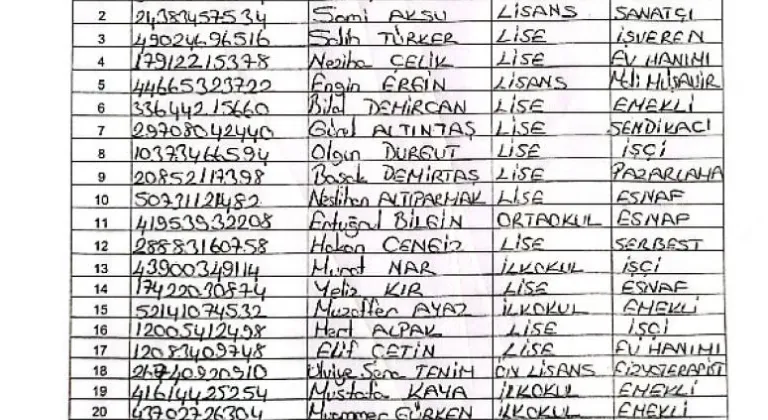 2 24383457534 Sami AKSU LİSANS SANATÇI
3 49024696516 Salih TÜRKER LİSE İŞVEREN
4 17912215378 Neziha ÇELİK LİSE EV HANIMI
5 44665323722 Engin ERGİN LİSANS Mali MÜŞAVİR
6 33644215660 Bilal DEMİRCAN LİSE EMEKLİ
7 29708042440 Gürel ALTINTAŞ LİSE SENDİKACI
8 10373466594 Olgun DURGUT LİSE İŞÇİ
9 20852117398 Başak DEMİRTAŞ LİSE PAZARLAMA
10 50731121482 Neslihan ALTIPARMAK LİSE ESNAF
11 41953932208 Ertuğrul BİLGİN ORTAOKUL ESNAF
12 28883160758 Hakan CENGİZ LİSE SERBEST
13 43900349114 Murat NAR İLKOKUL İŞÇİ
14 17422030874 Yeliz KIR LİSE ESNAF
15 52141074532 Muzaffer AYAZ İLKOKUL EMEKLİ
16 12005412498 Mert ALPAK LİSE İŞÇİ
17 12083409748 Elif ÇETİN LİSE EV HANIMI
18 Ulviye Sena TENİM ÖN LİSANS FİZYOTERAPİST
19 41614425254 Mustafa KAYA İLKOKUL EMEKLİ
20 43702726304 Muammer GÜRKEN İLKOKUL EMEKLİ